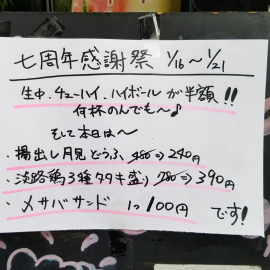 七周年感謝祭 1/16〜1/21
生中、チューハイ、ハイボールが半額!!
何杯のんでも〜♪
そして本日は〜
・揚出し月見どうふ 480⇒240円
・淡路鶏3種タタキ盛り 780⇒390円
・〆サバサンド 1つ100円
です!